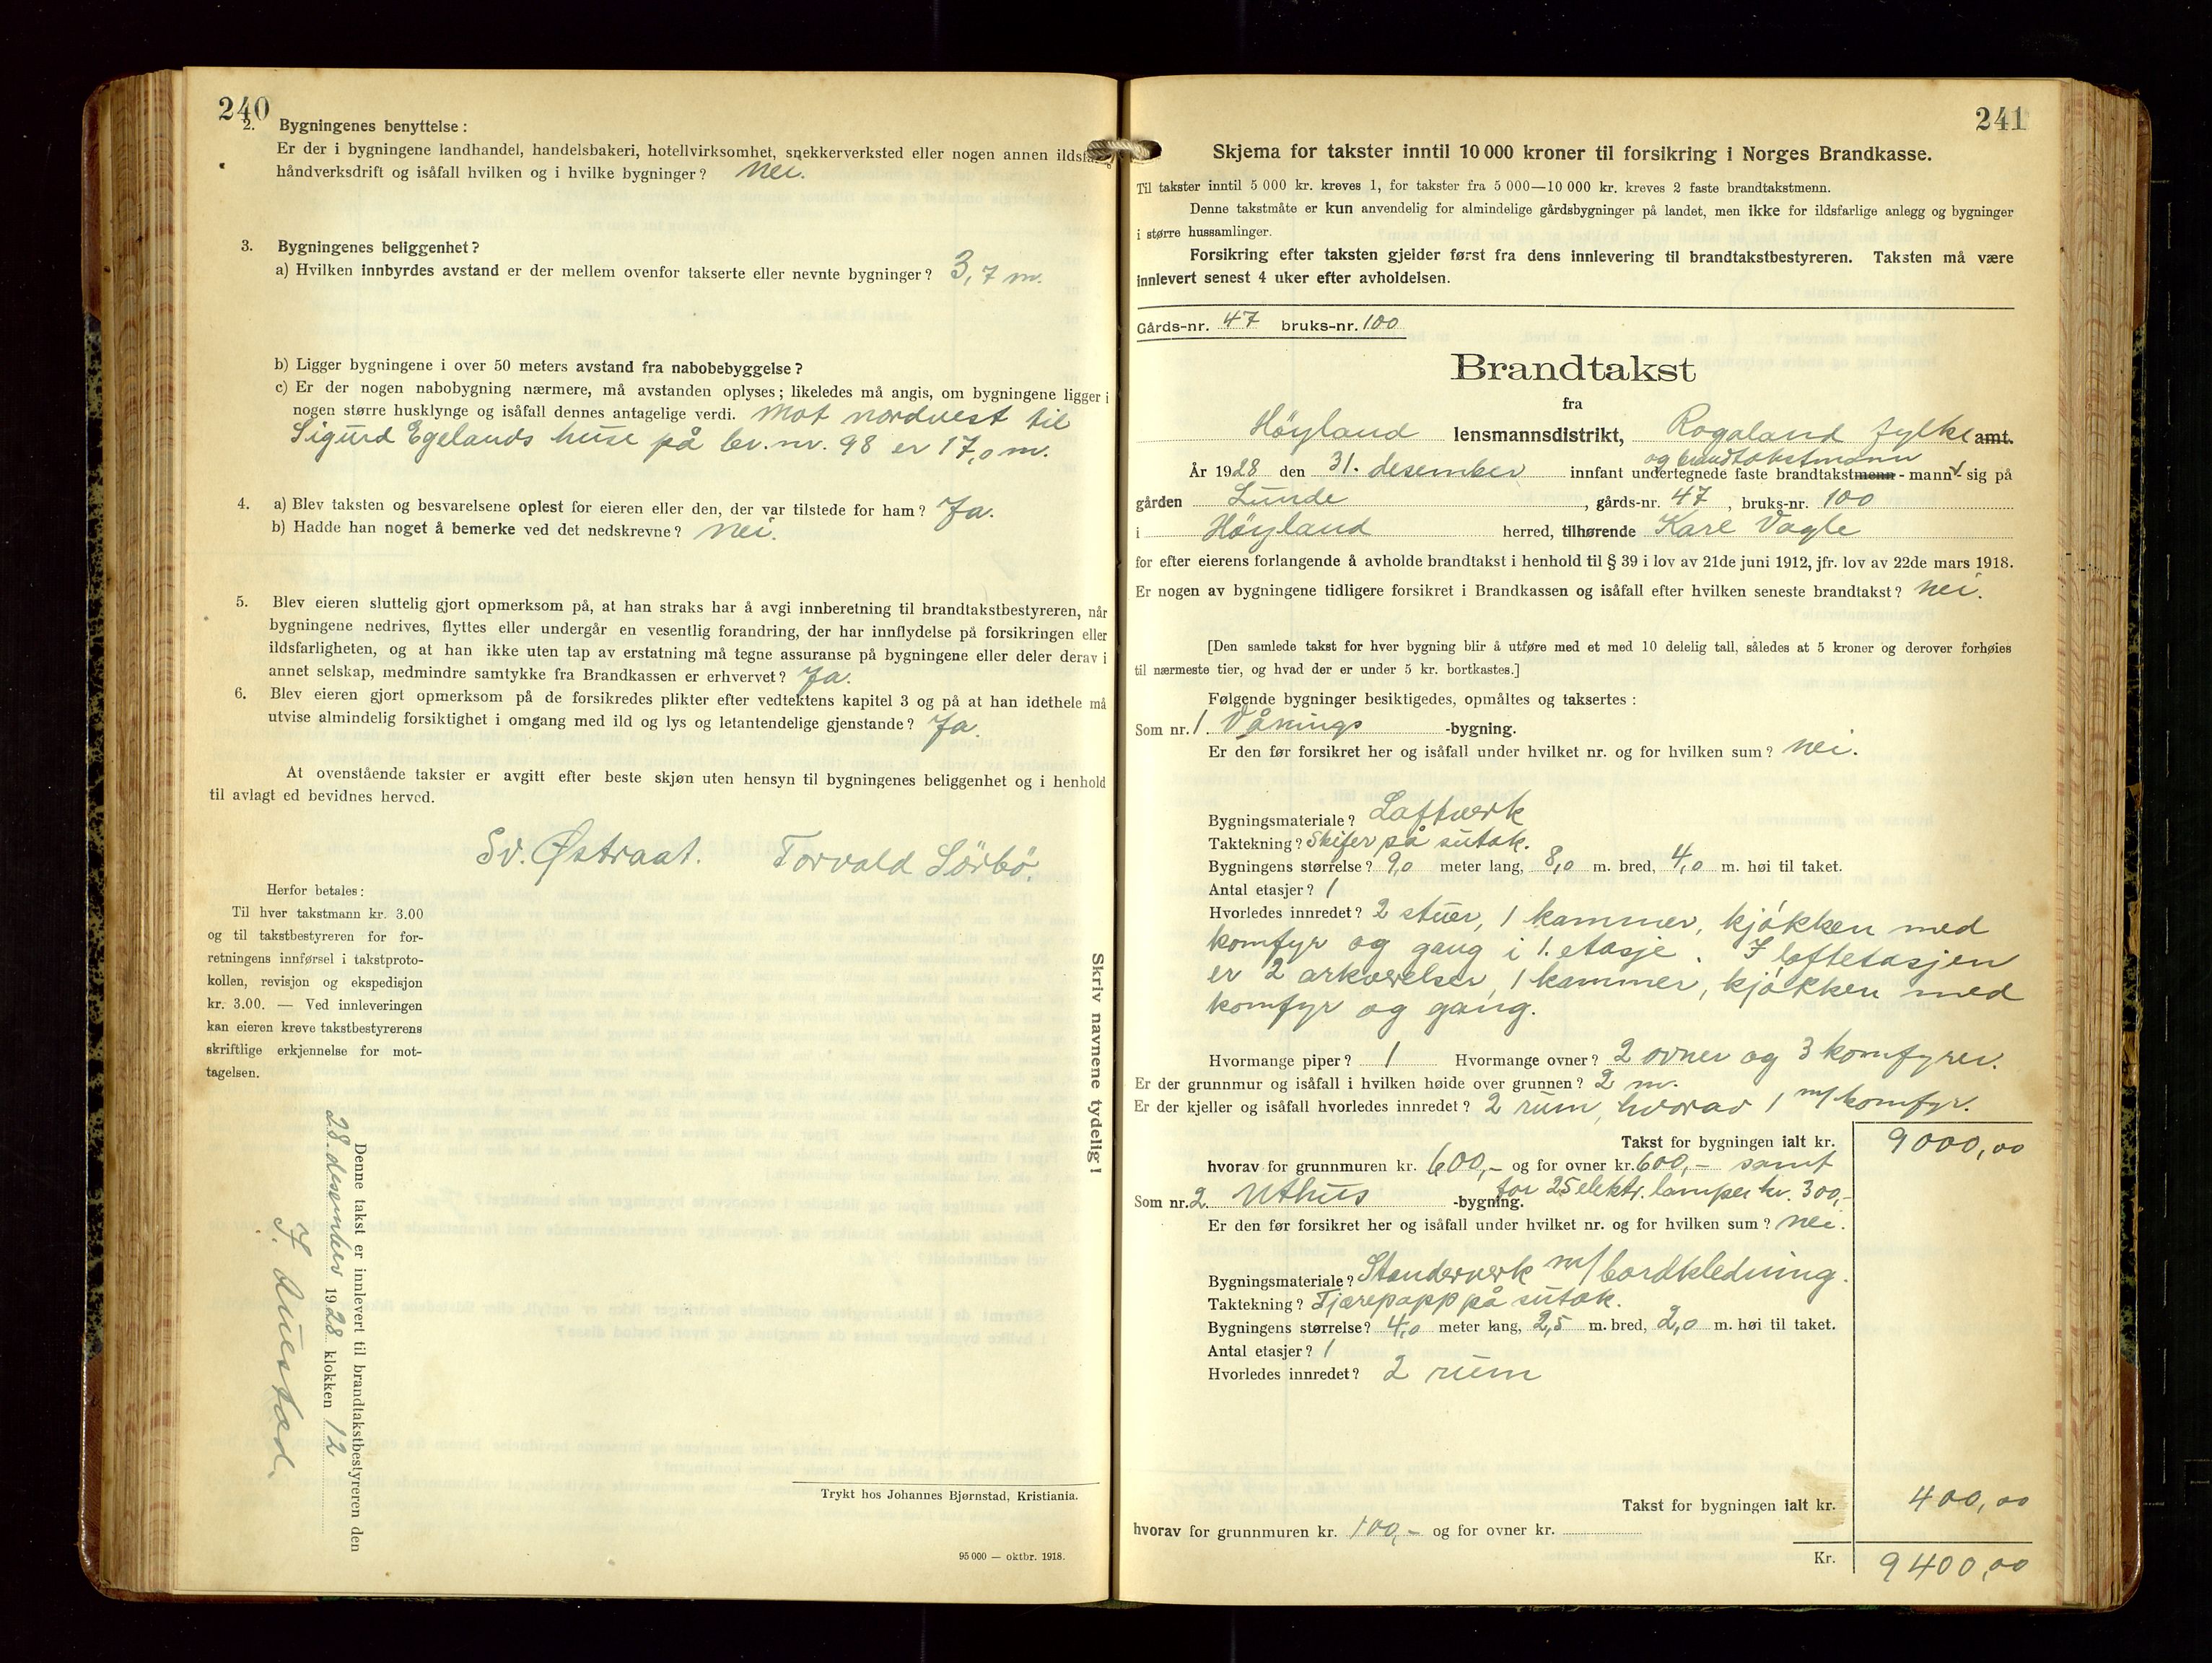 240
2. Bygningenes benyttelse :
Er der i bygningene landhandel, handelsbakeri, hotellvirksomhet, snekkerverksted eller nogen annen
håndverksdrift og isåfall hvilken og i hvilke bygninger? Nei.
3. Bygningenes beliggenhet?
a) Hvilken innbyrdes avstand er der mellem ovenfor takserte eller nevnte bygninger? 3,7 m.
b) Ligger bygningene i over 50 meters avstand fra nabobebyggelse?
c) Er der nogen nabobygning nærmere, må avstanden oplyses; likeledes må angis, om bygningene ligger i
nogen større husklynge og isåfall dennes antagelige verdi. Mot nordvest til
Sigurd Egelands huse på br. nr. 98 er 17,0 m.
4. a) Blev taksten og besvarelsene oplest for eieren eller den, der var tilstede for ham? Ja.
b) Hadde han noget å bemerke ved det nedskrevne? Nei.
5. Blev eieren sluttelig gjort opmerksom på, at han straks har å avgi innberetning til brandtakstbestyreren, når
bygningene nedrives, flyttes eller undergår en vesentlig forandring, der har innflydelse på forsikringen eller
ildsfarligheten, og at han ikke uten tap av erstatning må tegne assuranse på bygningene eller deler derav i
annet selskap, medmindre samtykke fra Brandkassen er erhvervet? Ja.
6. Blev eieren gjort opmerksom på de forsikredes plikter efter vedtektens kapitel 3 og på at han idethele må
utvise almindelig forsiktighet i omgang med ild og lys og letantendelige gjenstande? Ja.
At ovenstående takster er avgitt efter beste skjøn uten hensyn til bygningenes beliggenhet og i henhold
til avlagt ed bevidnes herved.
Sv. Østraat. Torvald Sörbö.
Herfor betales :
Til hver takstmann kr. 3.00
og til takstbestyreren for for-
retningens innførsel i takstproto-
kollen, revisjon og ekspedisjon
kr. 3.00. — Ved innleveringen
kan eieren kreve takstbestyrerens
skriftlige erkjennelse for mot-
tagelsen.
Skriv navnene tydelig!
Denne takst er innlevert til brandtakstbestyreren den
28. desember 1928 klokken 12
Trykt hos Johannes Bjørnstad, Kristiania.
95 000 — oktbr. 1918.
241
Skjema for takster inntil 10 000 kroner til forsikring i Norges Brandkasse.
Til takster inntil 5 000 kr. kreves 1, for takster fra 5 000—10 000 kr. kreves 2 faste brandtakstmenn.
Denne takstmåte er kun anvendelig for almindelige gårdsbygninger på landet, men ikke for ildsfarlige anlegg og bygninger
i større hussamlinger.
Forsikring efter taksten gjelder først fra dens innlevering til brandtakstbestyreren. Taksten må være
innlevert senest 4 uker efter avholdelsen.
Gårds-nr. 47 bruks-nr. 100
Brandtakst
fra
Höyland lensmannsdistrikt, Rogaland fylke amt.
og brandtakstmann
År 1928 den 31. desember innfant undertegnede faste brandtakstmenn - mann - sig på
gården Lunde, gårds-nr. 47, bruks-nr. 100
i Höyland herred, tilhørende Karl Vagle
for efter eierens forlangende å avholde brandtakst i henhold til § 39 i lov av 21de juni 1912, jfr. lov av 22de mars 1918.
Er nogen av bygningene tidligere forsikret i Brandkassen og isåfall efter hvilken seneste brandtakst? Nei.
[Den samlede takst for hver bygning blir å utføre med et med 10 delelig tall, således at 5 kroner og derover forhøies
til nærmeste tier, og hvad der er under 5 kr. bortkastes.]
Følgende bygninger besiktigedes, opmåltes og taksertes :
Som nr. 1. Vånings -bygning.
Er den før forsikret her og isåfall under hvilket nr. og for hvilken sum? Nei.
Bygningsmateriale? Laftverk
Taktekning? Skifer på sutak.
Bygningens størrelse? 9,0 meter lang, 8,0 m. bred, 4,0 m. høi til taket.
Antal etasjer? 1
Hvorledes innredet? 2 stuer, 1 kammer, kjökken med
komfyr og gang i 1. etasje. I loftetasjen
er 2 arkværelser, 1 kammer, kjökken med
komfyr og gang.
Hvormange piper? 1 Hvormange ovner? 2 ovner og 3 komfyrer.
Er der grunnmur og isåfall i hvilken høide over grunnen? 2 m.
Er der kjeller og isåfall hvorledes innredet? 2 rum, hvorav 1 m/ komfyr.
Takst for bygningen ialt kr. 9000,00
hvorav for grunnmuren kr. 600,- og for ovner kr. 600,- samt
for 25 elektr. lamper kr. 300,-
Som nr. 2. Uthus -bygning.
Er den før forsikret her og isåfall under hvilket nr. og for hvilken sum? Nei.
Bygningsmateriale? Standerverk m/ bordkledning.
Taktekning? Tjærepapp på sutak.
Bygningens størrelse? 4,0 meter lang, 2,5 m. bred, 2,0 m. høi til taket.
Antal etasjer? 1
Hvorledes innredet? 2 rum
Takst for bygningen ialt kr. 400,00
hvorav for grunnmuren kr. 100,- og for ovner kr.
Kr. 9400,00